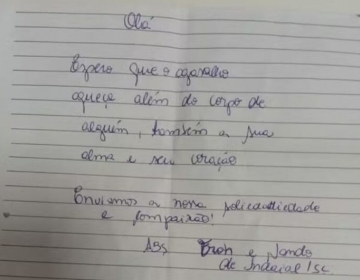 Olá
Espero que o agasalho
aqueça além do corpo de
alguém, também a sua
alma e seu coração
Enviamos a nossa
e compaixão!
Abs e
de Indaial/SC.